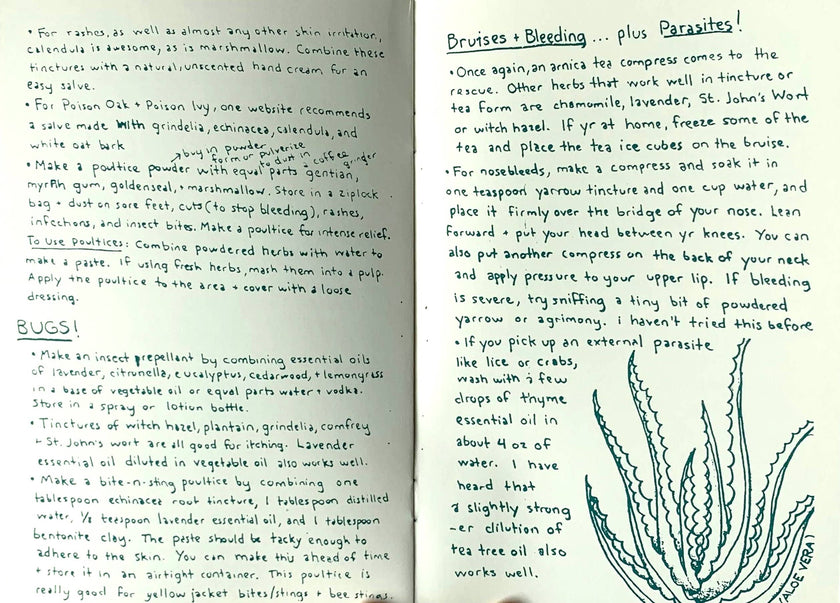 • For rashes, as well as almost any other skin irritation,
calendula is awesome, as is marshmallow. Combine these
tinctures with a natural, unscented hand cream for an
easy salve.
• For Poison Oak + Poison Ivy, one website recommends
a salve made with grindelia, echinacea, calendula, and
white oat bark
→buy in powder
form or pulverize
to dust in a coffee
grinder
• Make a poultice powder with equal parts gentian,
myrrh gum, goldenseal, + marshmallow. Store in a ziplock
bag + dust on sore feet, cuts (to stop bleeding), rashes,
infections, and insect bites. Make a poultice for intense relief.
To Use Poultices: Combine powdered herbs with water to
make a paste. If using fresh herbs, mash them into a pulp.
Apply the poultice to the area + cover with a loose
dressing.
BUGS!
• Make an insect repellant by combining essential oils
of lavender, citrunella, eucalyptus, cedarwood, + lemongrass
in a base of vegetable oil or equal parts water + vodka.
Store in a spray or lotion bottle.
• Tinctures of witch hazel, plantain, grindelia, comfrey
+ St. John's wort are all good for itching. Lavender
essential oil diluted in vegetable oil also works well.
• Make a bite-n-sting poultice by combining one
tablespoon echinacea root tincture, 1 tablespoon distilled
water, ½ teaspoon lavender essential oil, and 1 tablespoon
bentonite clay. The paste should be tacky enough to
adhere to the skin. You can make this ahead of time
+ store it in an airtight container. This poultice is
really good for yellow jacket bites/stings + bee stings.
Bruises + Bleeding... plus Parasites!
• Once again, an arnica tea compress comes to the
rescue. Other herbs that work well in tincture or
tea form are chamomile, lavender, St. John's Wort
or witch hazel. If yr at home, freeze some of the
tea and place the tea ice cubes on the bruise.
• For nosebleeds, make a compress and soak it in
one teaspoon yarrow tincture and one cup water, and
place it firmly over the bridge of your nose. Lean
forward + put your head between yr knees. You can
also put another compress on the back of your neck
and apply pressure to your upper lip. If bleeding
is severe, try sniffing a tiny bit of powdered
yarrow or agrimony. i haven't tried this before
• If you pick up an external parasite
like lice or crabs,
wash with a few
drops of thyme
essential oil in
about 4 oz of
water. I have
heard that
a slightly strong
-er dilution of
tea tree oil also
works well.
(ALOE VERA)